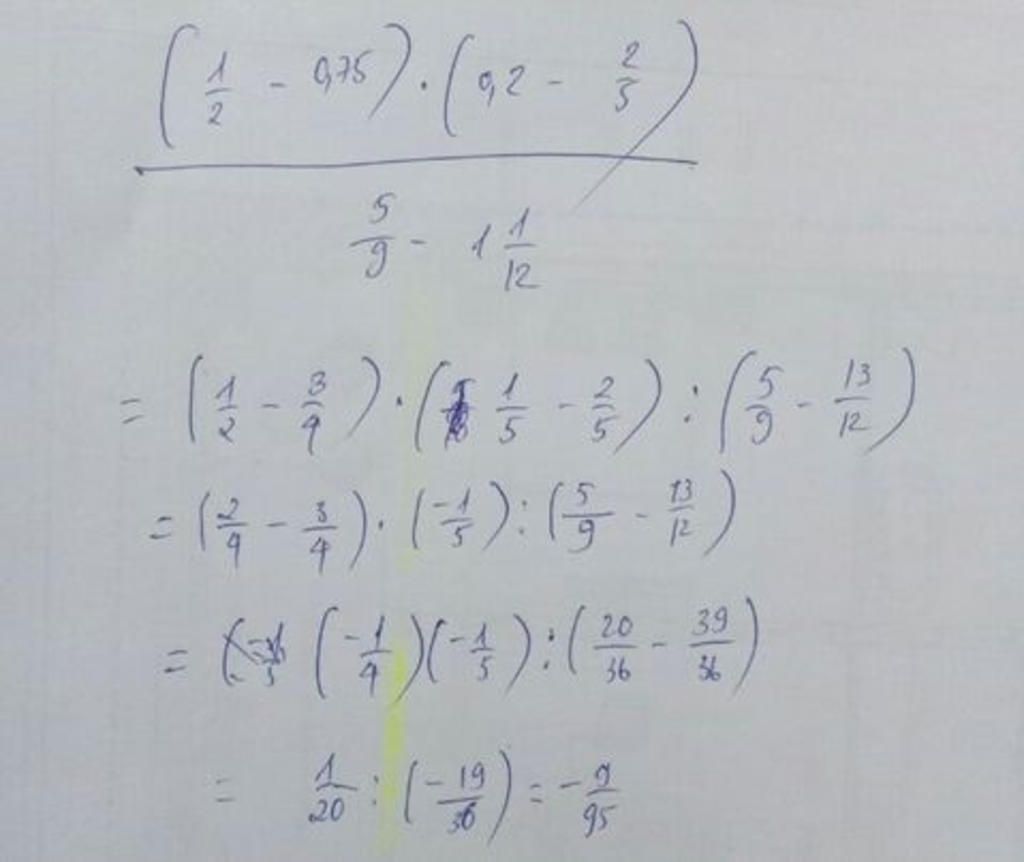 (1/2 - 0,75) · (0,2 - 2/5)
5/9 - 1 1/12
= (1/2 - 3/4) · (1/5 - 2/5) : (5/9 - 13/12)
= (2/4 - 3/4) · (-1/5) : (5/9 - 13/12)
= (-1/4)(-1/5) : (20/36 - 39/36)
= 1/20 : (-19/36) = -9/95